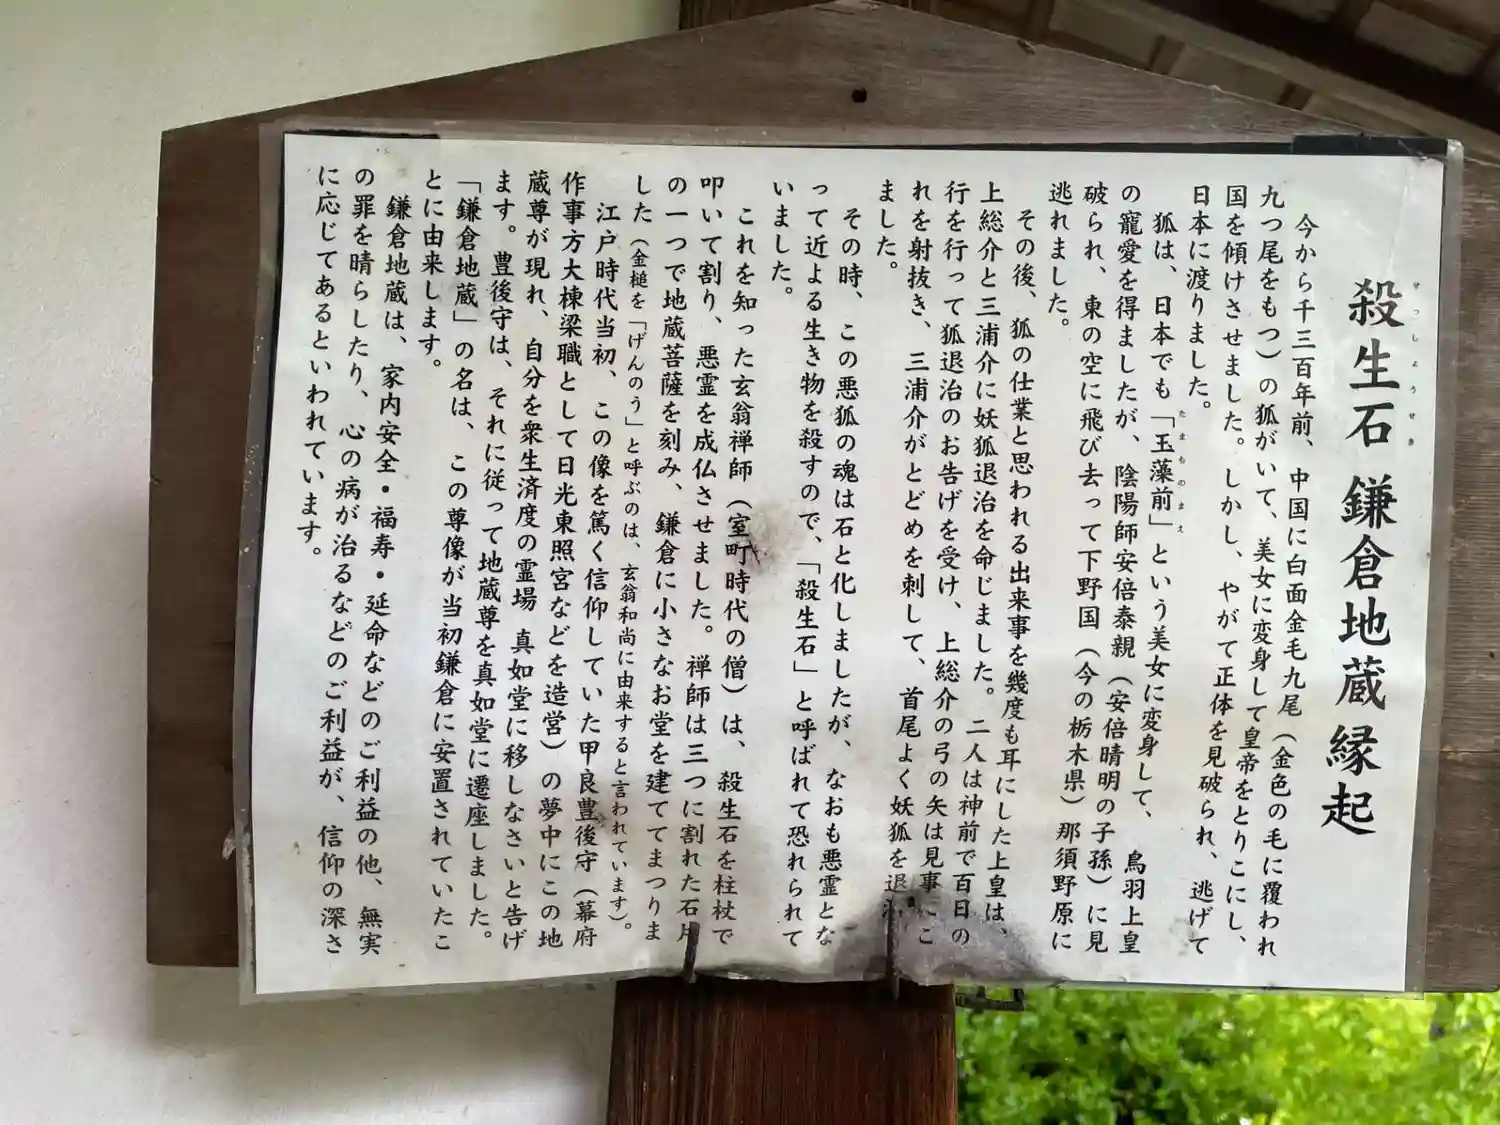 殺生石 鎌倉地蔵縁起
せっしょうせき
今から千三百年前、中国に白面金毛九尾（金色の毛に覆われ
九つ尾をもつ）の狐がいて、美女に変身して皇帝をとりこにし、
国を傾けさせました。しかし、やがて正体を見破られ、逃げて
日本に渡りました。
狐は、日本でも「玉藻前」という美女に変身して、鳥羽上皇
たまものまえ
の寵愛を得ましたが、陰陽師安倍泰親（安倍晴明の子孫）に見
破られ、東の空に飛び去って下野国（今の栃木県）那須野原に
逃れました。
その後、狐の仕業と思われる出来事を幾度も耳にした上皇は、
上総介と三浦介に妖狐退治を命じました。二人は神前で百日の
行を行って狐退治のお告げを受け、上総介の弓の矢は見事にこ
れを射抜き、三浦介がとどめを刺して、首尾よく妖狐を退治
ました。
その時、この悪狐の魂は石と化しましたが、なおも悪霊とな
って近よる生き物を殺すので、「殺生石」と呼ばれて恐れられて
いました。
これを知った玄翁禅師（室町時代の僧）は、殺生石を柱杖で
叩いて割り、悪霊を成仏させました。禅師は三つに割れた石片
の一つで地蔵菩薩を刻み、鎌倉に小さなお堂を建ててまつりま
した（金槌を「げんのう」と呼ぶのは、玄翁和尚に由来すると言われています）。
江戸時代当初、この像を篤く信仰していた甲良豊後守（幕府
作事方大棟梁職として日光東照宮などを造営）の夢中にこの地
蔵尊が現れ、自分を衆生済度の霊場 真如堂に移しなさいと告げ
ます。豊後守は、それに従って地蔵尊を真如堂に遷座しました。
「鎌倉地蔵」の名は、この尊像が当初鎌倉に安置されていたこ
とに由来します。
鎌倉地蔵は、家内安全・福寿・延命などのご利益の他、無実
の罪を晴らしたり、心の病が治るなどのご利益が、信仰の深さ
に応じてあるといわれています。